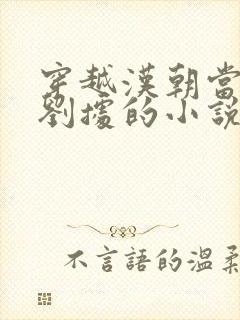 穿越漢朝當
劉據的小說
不言語的溫柔